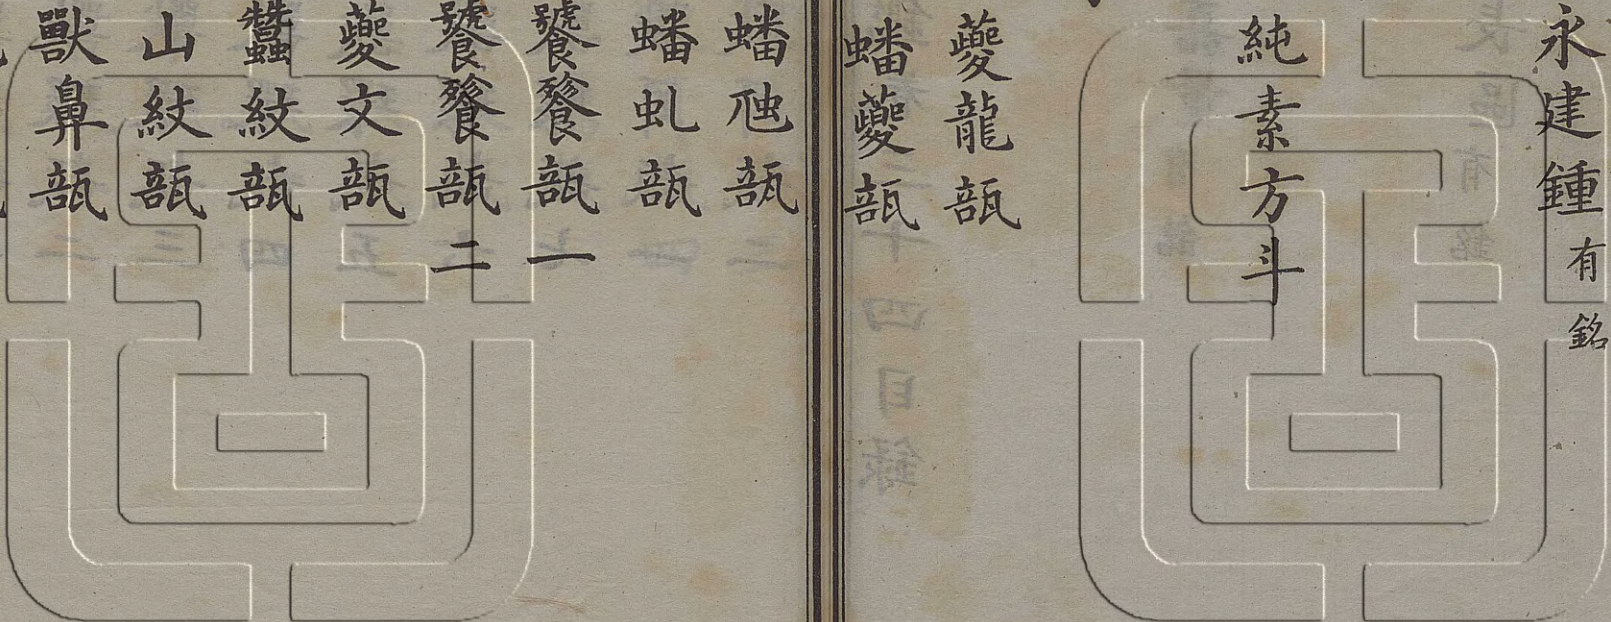 永建鍾有銘
純素方斗
夔龍瓿
蟠夔瓿
蟠虺瓿
蟠虬瓿
饕餮瓿一
饕餮瓿二
夔文瓿
蠶紋瓿
山紋瓿
獸鼻瓿